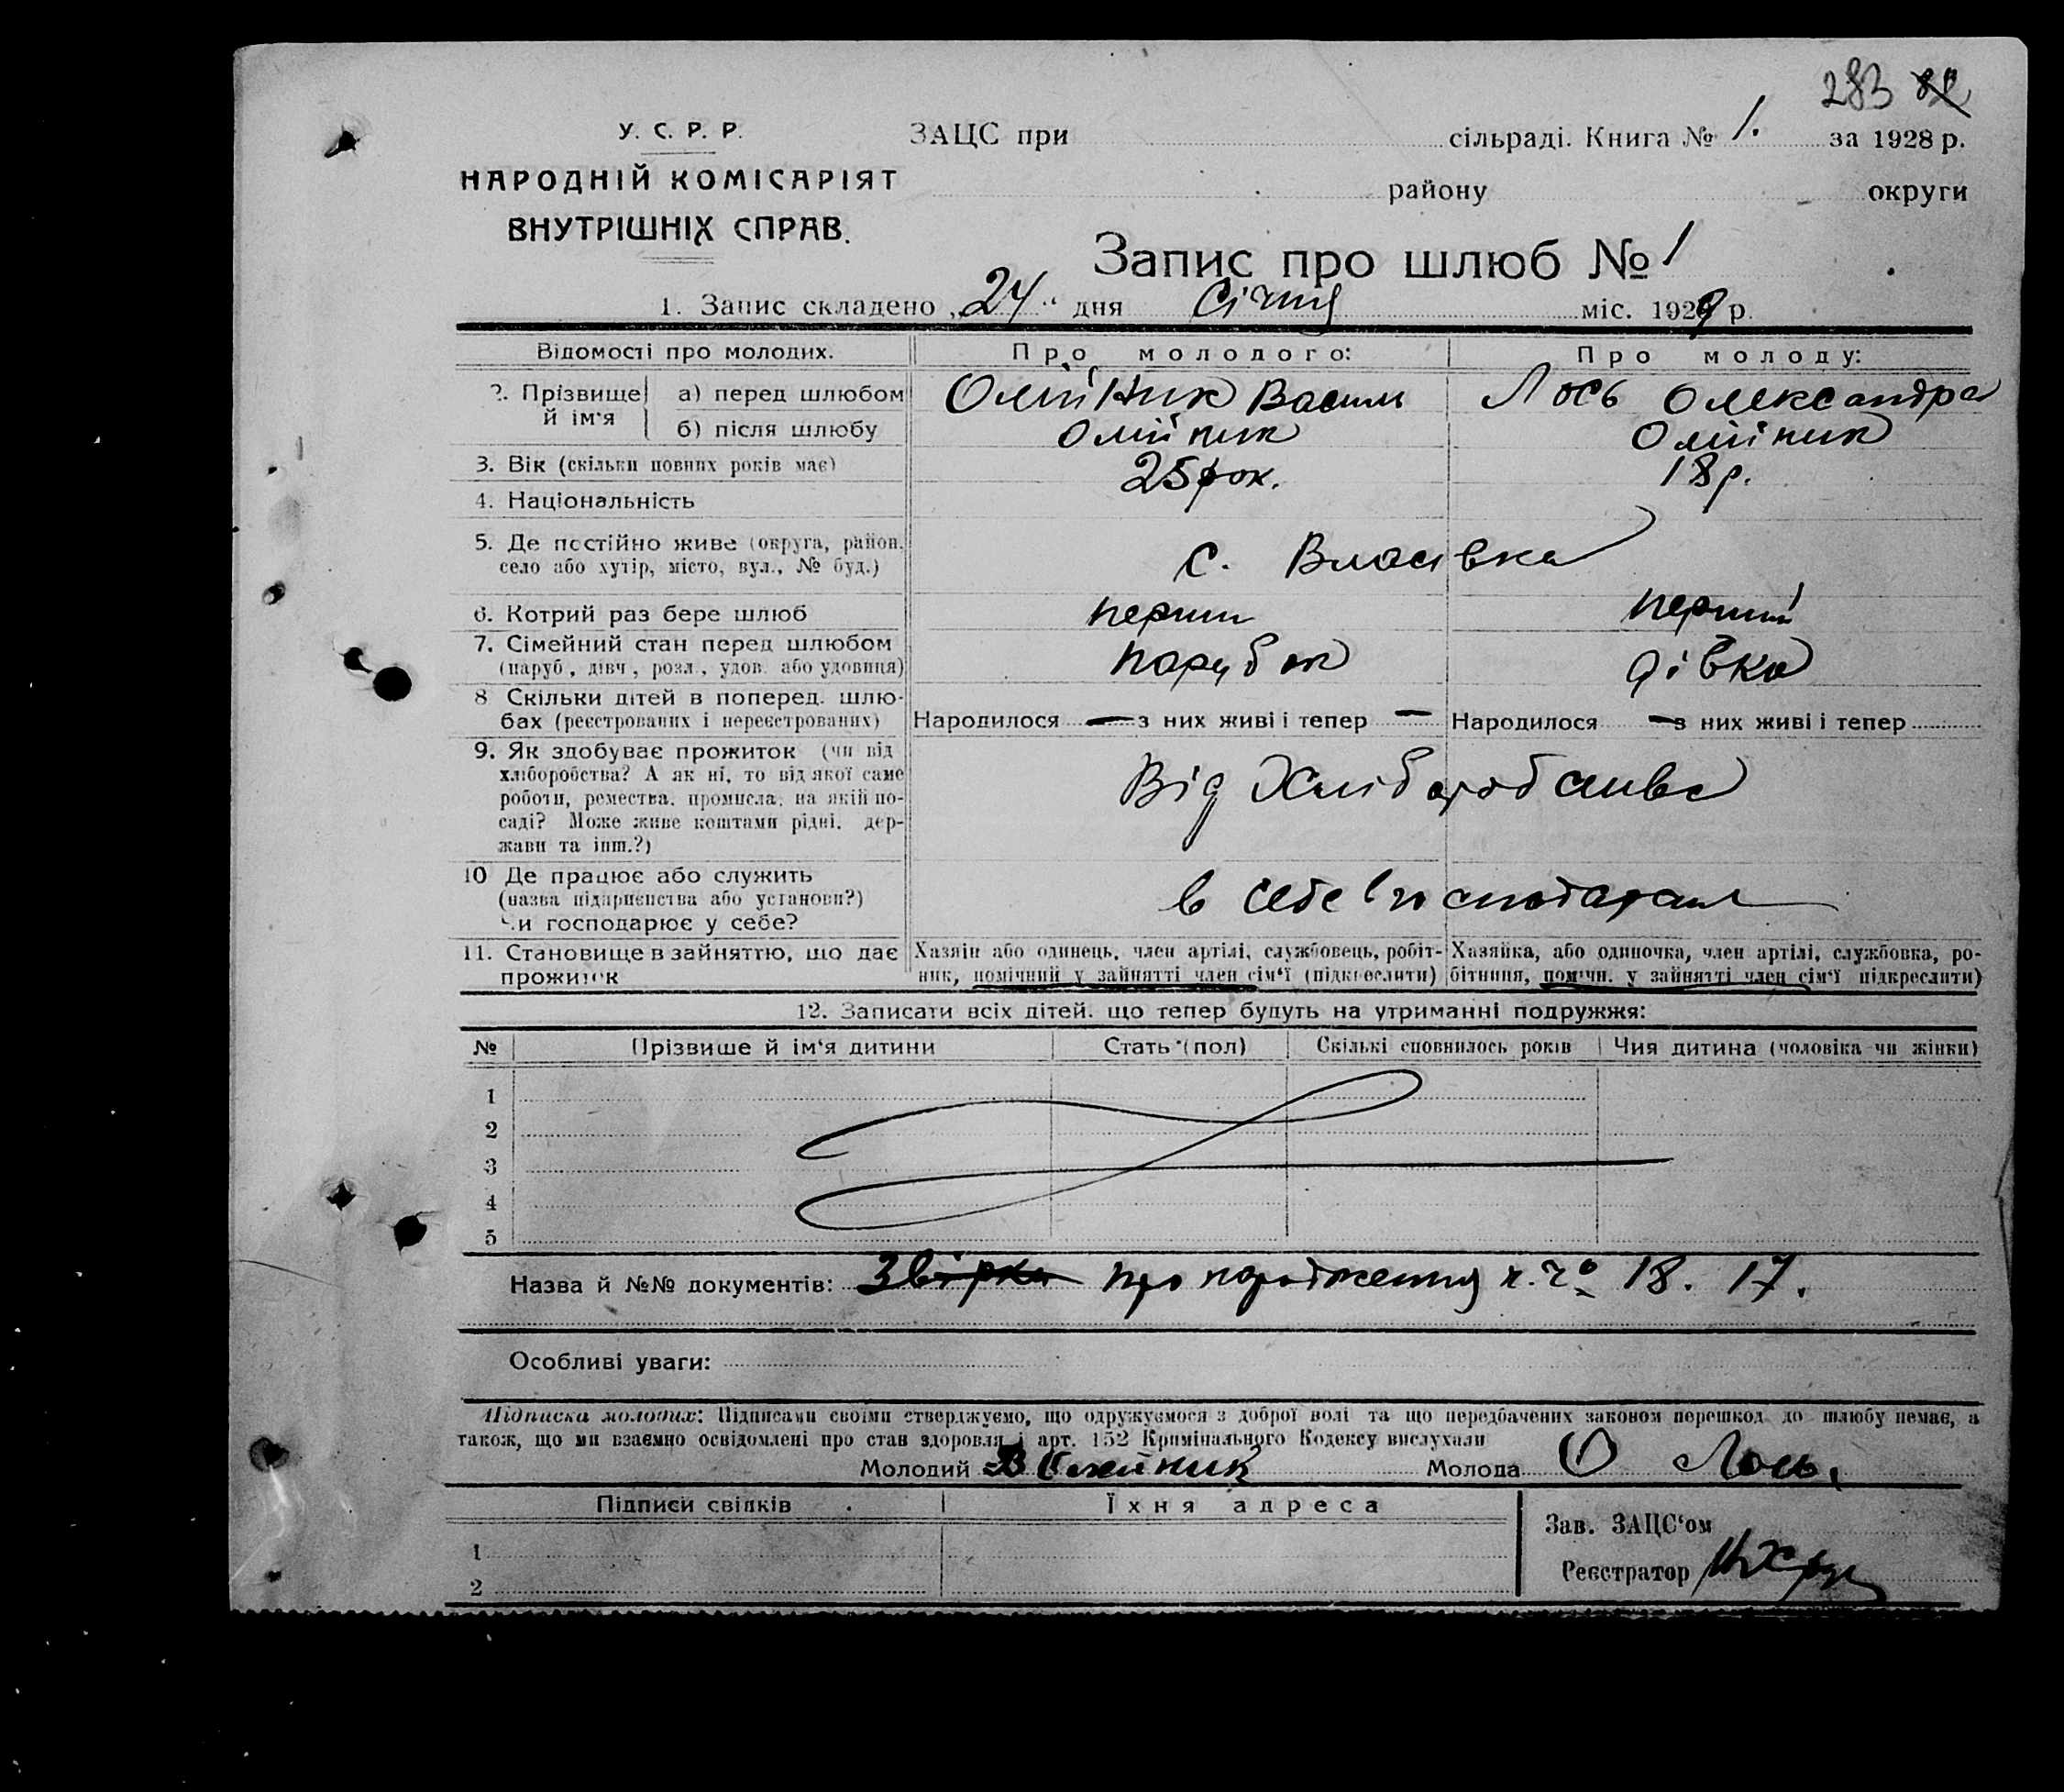 283
У. С. Р. Р. ЗАЦС при сільраді. Книга № 1. за 1928 р.
НАРОДНІЙ КОМІСАРІЯТ району округи
ВНУТРІШНІХ СПРАВ.
Запис про шлюб № 1
1. Запис складено „24“ дня Січня міс. 1929 р.
Відомості про молодих. Про молодого: Про молоду:
2. Прізвище й ім‘я а) перед шлюбом Олійник Василь Лось Олександра
б) після шлюбу Олійник Олійник
3. Вік (скільки повних років має) 25 рок. 18 р.
4. Національність
5. Де постійно живе (округа, район,
село або хутір, місто, вул., № буд.) с. Власівка
6. Котрий раз бере шлюб перший перший
7. Сімейний стан перед шлюбом
(паруб., дівч., розл., удов. або удовиця) парубок дівка
8 Скільки дітей в поперед. шлю-
бах (реєстрованих і нереєстрованих) Народилося — з них живі і тепер — Народилося — з них живі і тепер
9. Як здобуває прожиток (чи від
хліборобства? А як ні, то від якої саме
роботи, ремества, промисла, на якій по-
саді? Може живе коштами рідні, дер-
жави та інш.?) Від Хліборобства
10 Де працює або служить
(назва підприємства або установи?)
Чи господарює у себе? в себе в господарстві
11. Становище в зайняттю, що дає Хазяїн або одинець, член артілі, службовець, робіт- Хазяйка, або одиночка, член артілі, службовка, ро-
прожиток ник, помічний у зайнятті член сім‘ї (підкреслити) бітниця, помічн. у зайнятті член сім‘ї підкреслити)
12. Записати всіх дітей, що тепер будуть на утриманні подружжя:
№ Прізвище й ім‘я дитини Стать (пол) Скількі сповнилось років Чия дитина (чоловіка чи жінки)
1
2
3
4
5
Назва й №№ документів: Звірка про народження 18. 17.
Особливі уваги:
Підписка молодих: Підписами своїми стверджуємо, що одружуємося з доброї волі та що передбачених законом перешкод до шлюбу немає, а
також, що ми взаємно освідомлені про стан здоровля і арт. 152 Кримінального Кодексу вислухали
Молодий В Олейник Молода О Лось.
Підписи свідків Їхня адреса
Зав. ЗАЦС‘ом
1
Реєстратор
2